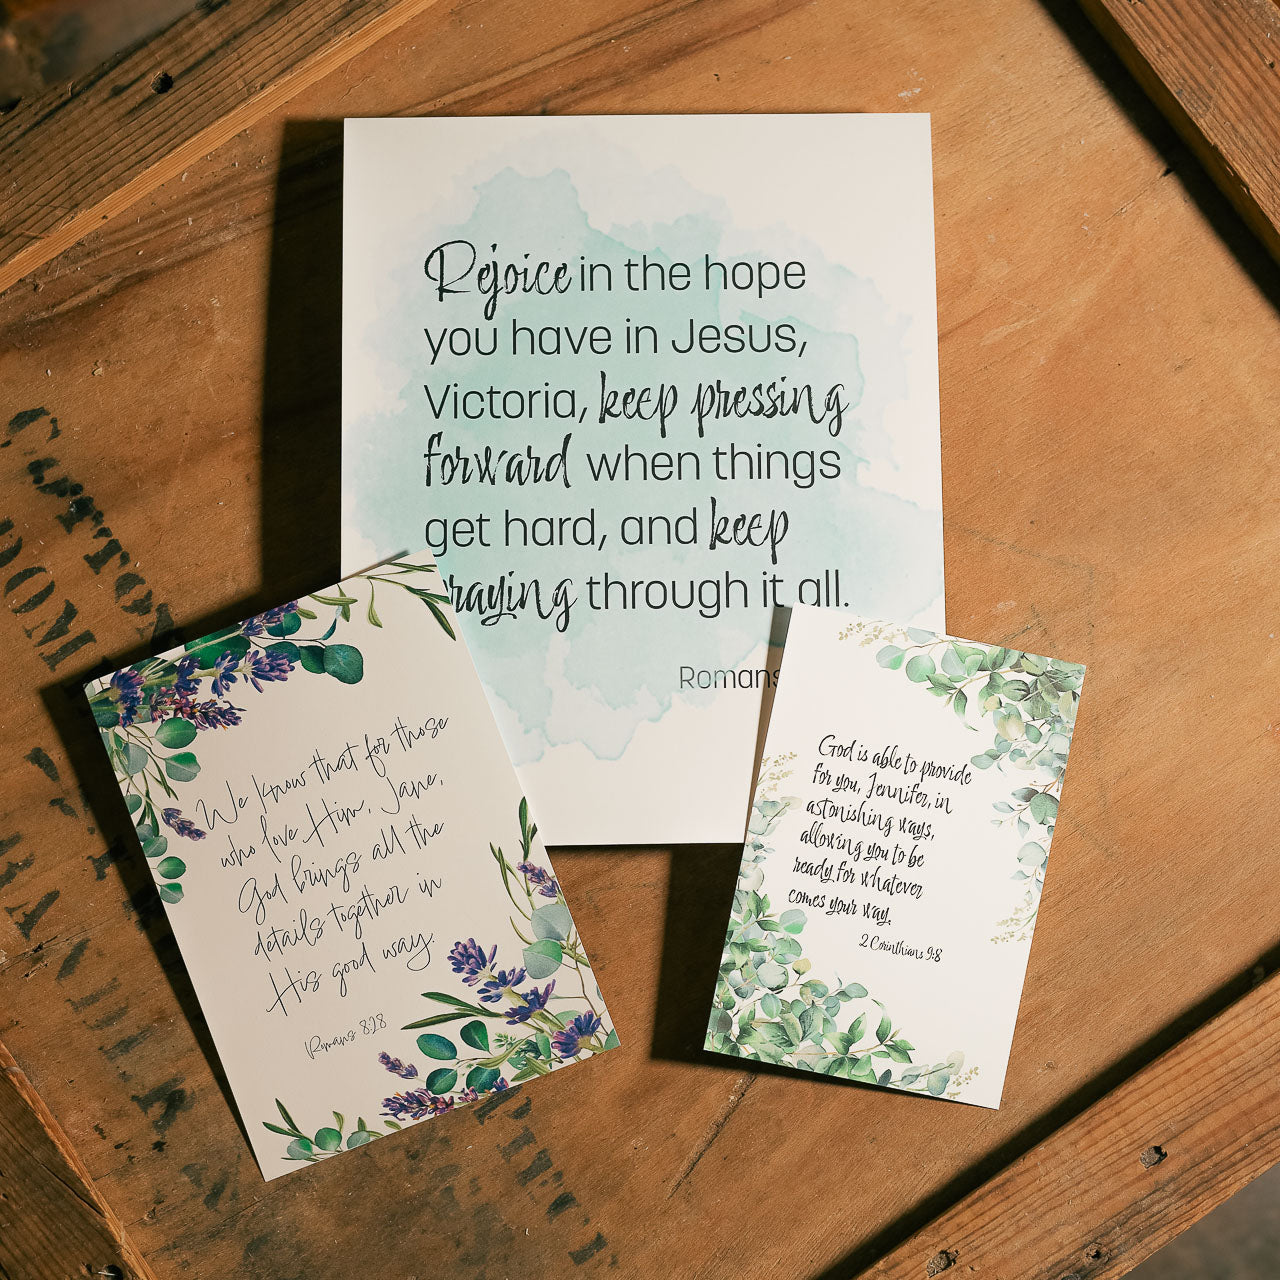 Rejoice in the hope
you have in Jesus,
Victoria, keep pressing
forward when things
get hard, and keep
praying through it all.
Romans
We know that for those
who love Him, Jane,
God brings all the
details together in
His good way.
Romans 8:28
God is able to provide
for you, Jennifer, in
astonishing ways,
allowing you to be
ready for whatever
comes your way.
2 Corinthians 9:8